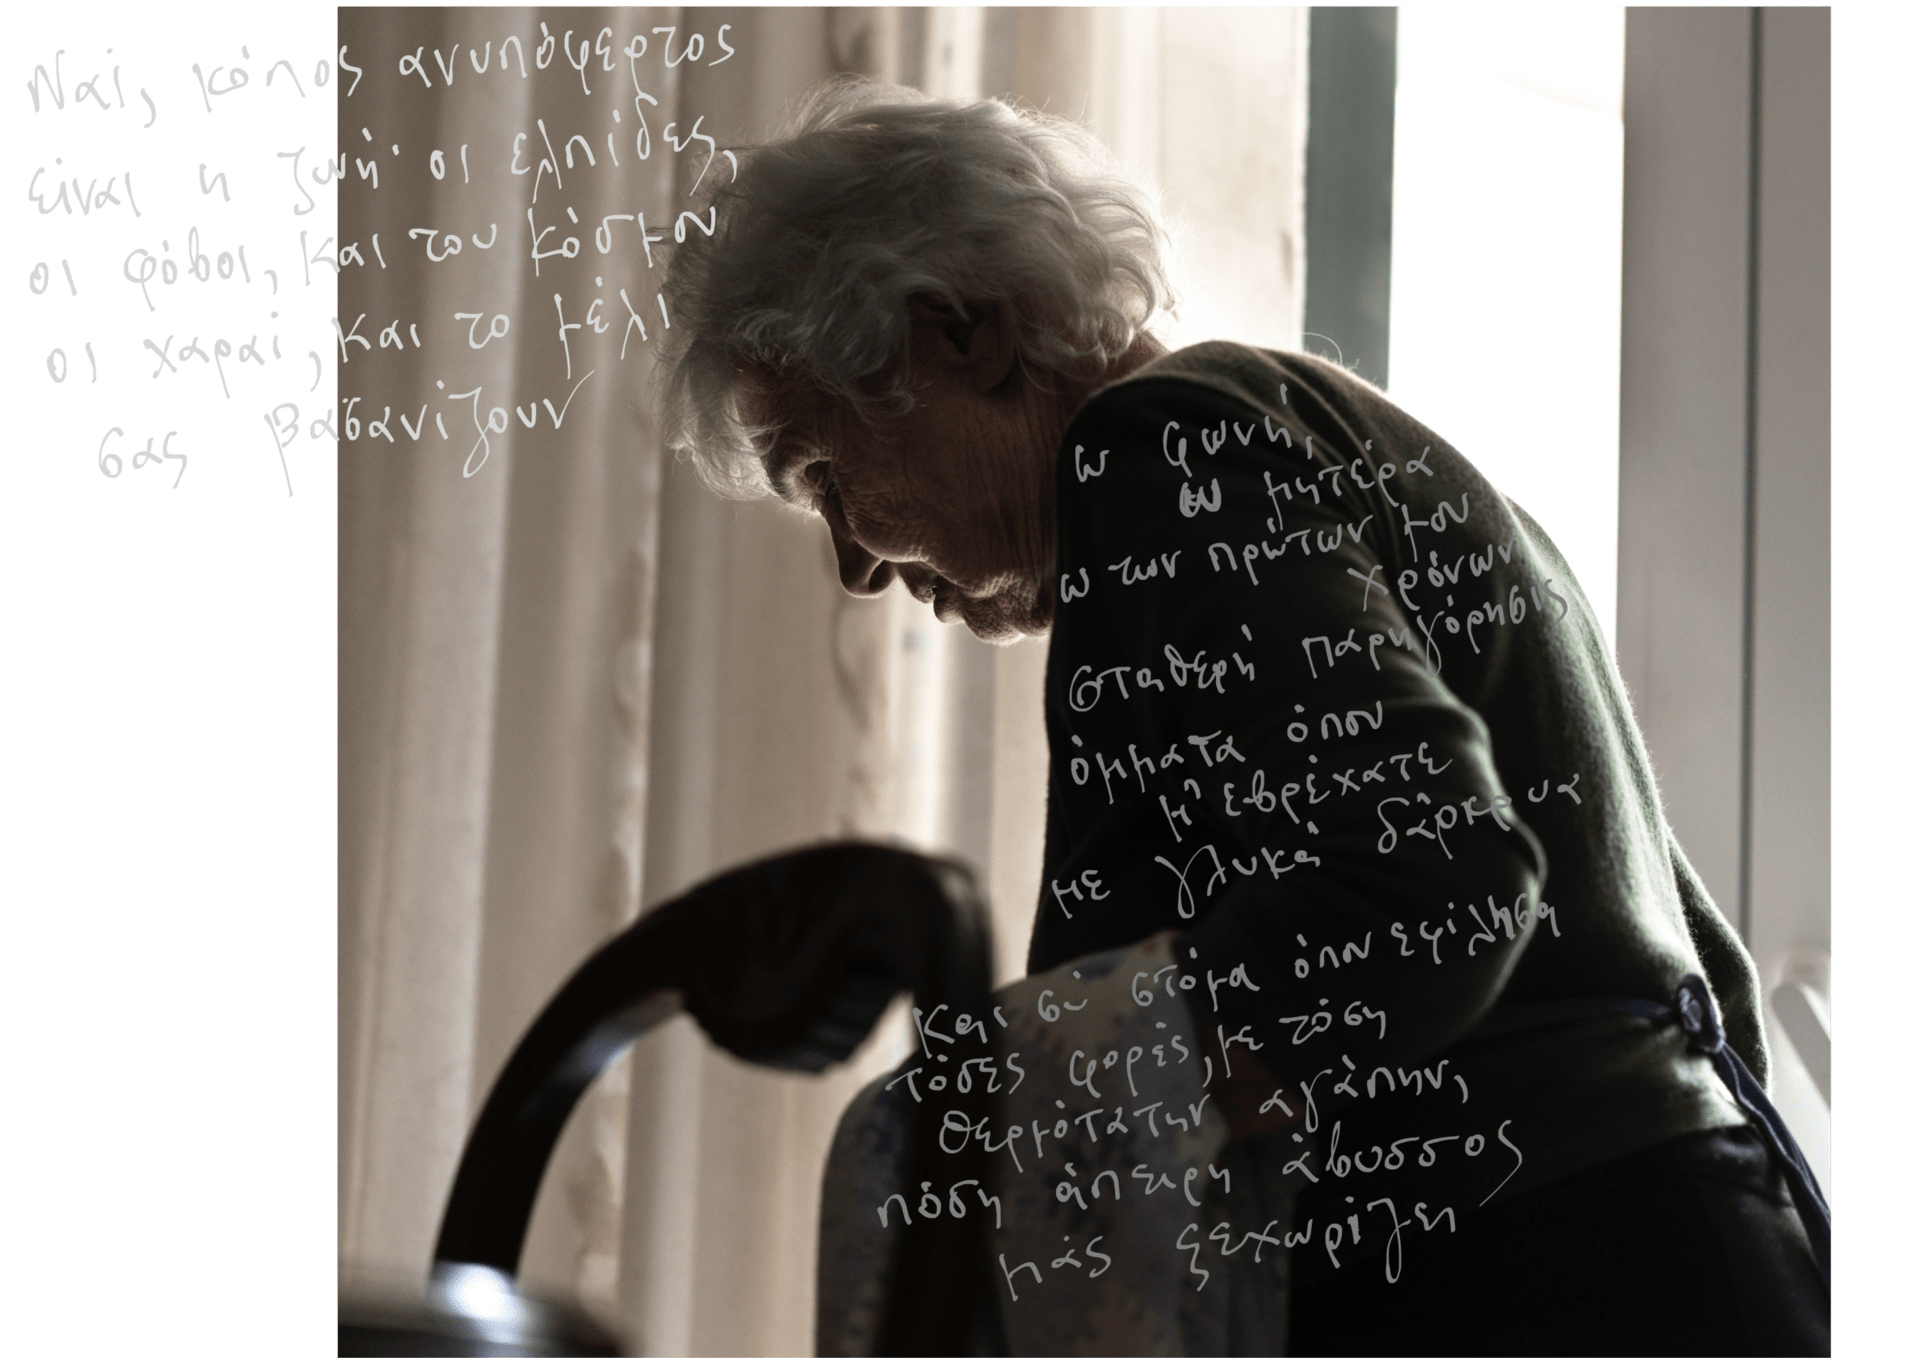 Ναί, κόπος ανυπόφερτος
είναι η ζωή· οι ελπίδες,
οι φόβοι, και του κόσμου
οι χαραί, και το μέλι
σας βασανίζουν
ω φωνή,
ω μητέρα
ω των πρώτων μου
χρόνων
σταθερή παρηγόρησις
όμματα όπου
μ' εβρέχατε
με γλυκά δάρκρυα
Και σύ στόμα όπου εφίλησα
τόσες φορές, με τόση
θερμότατην αγάπην,
πόση άπειρη άβυσσος
μάς ξεχωρίζει